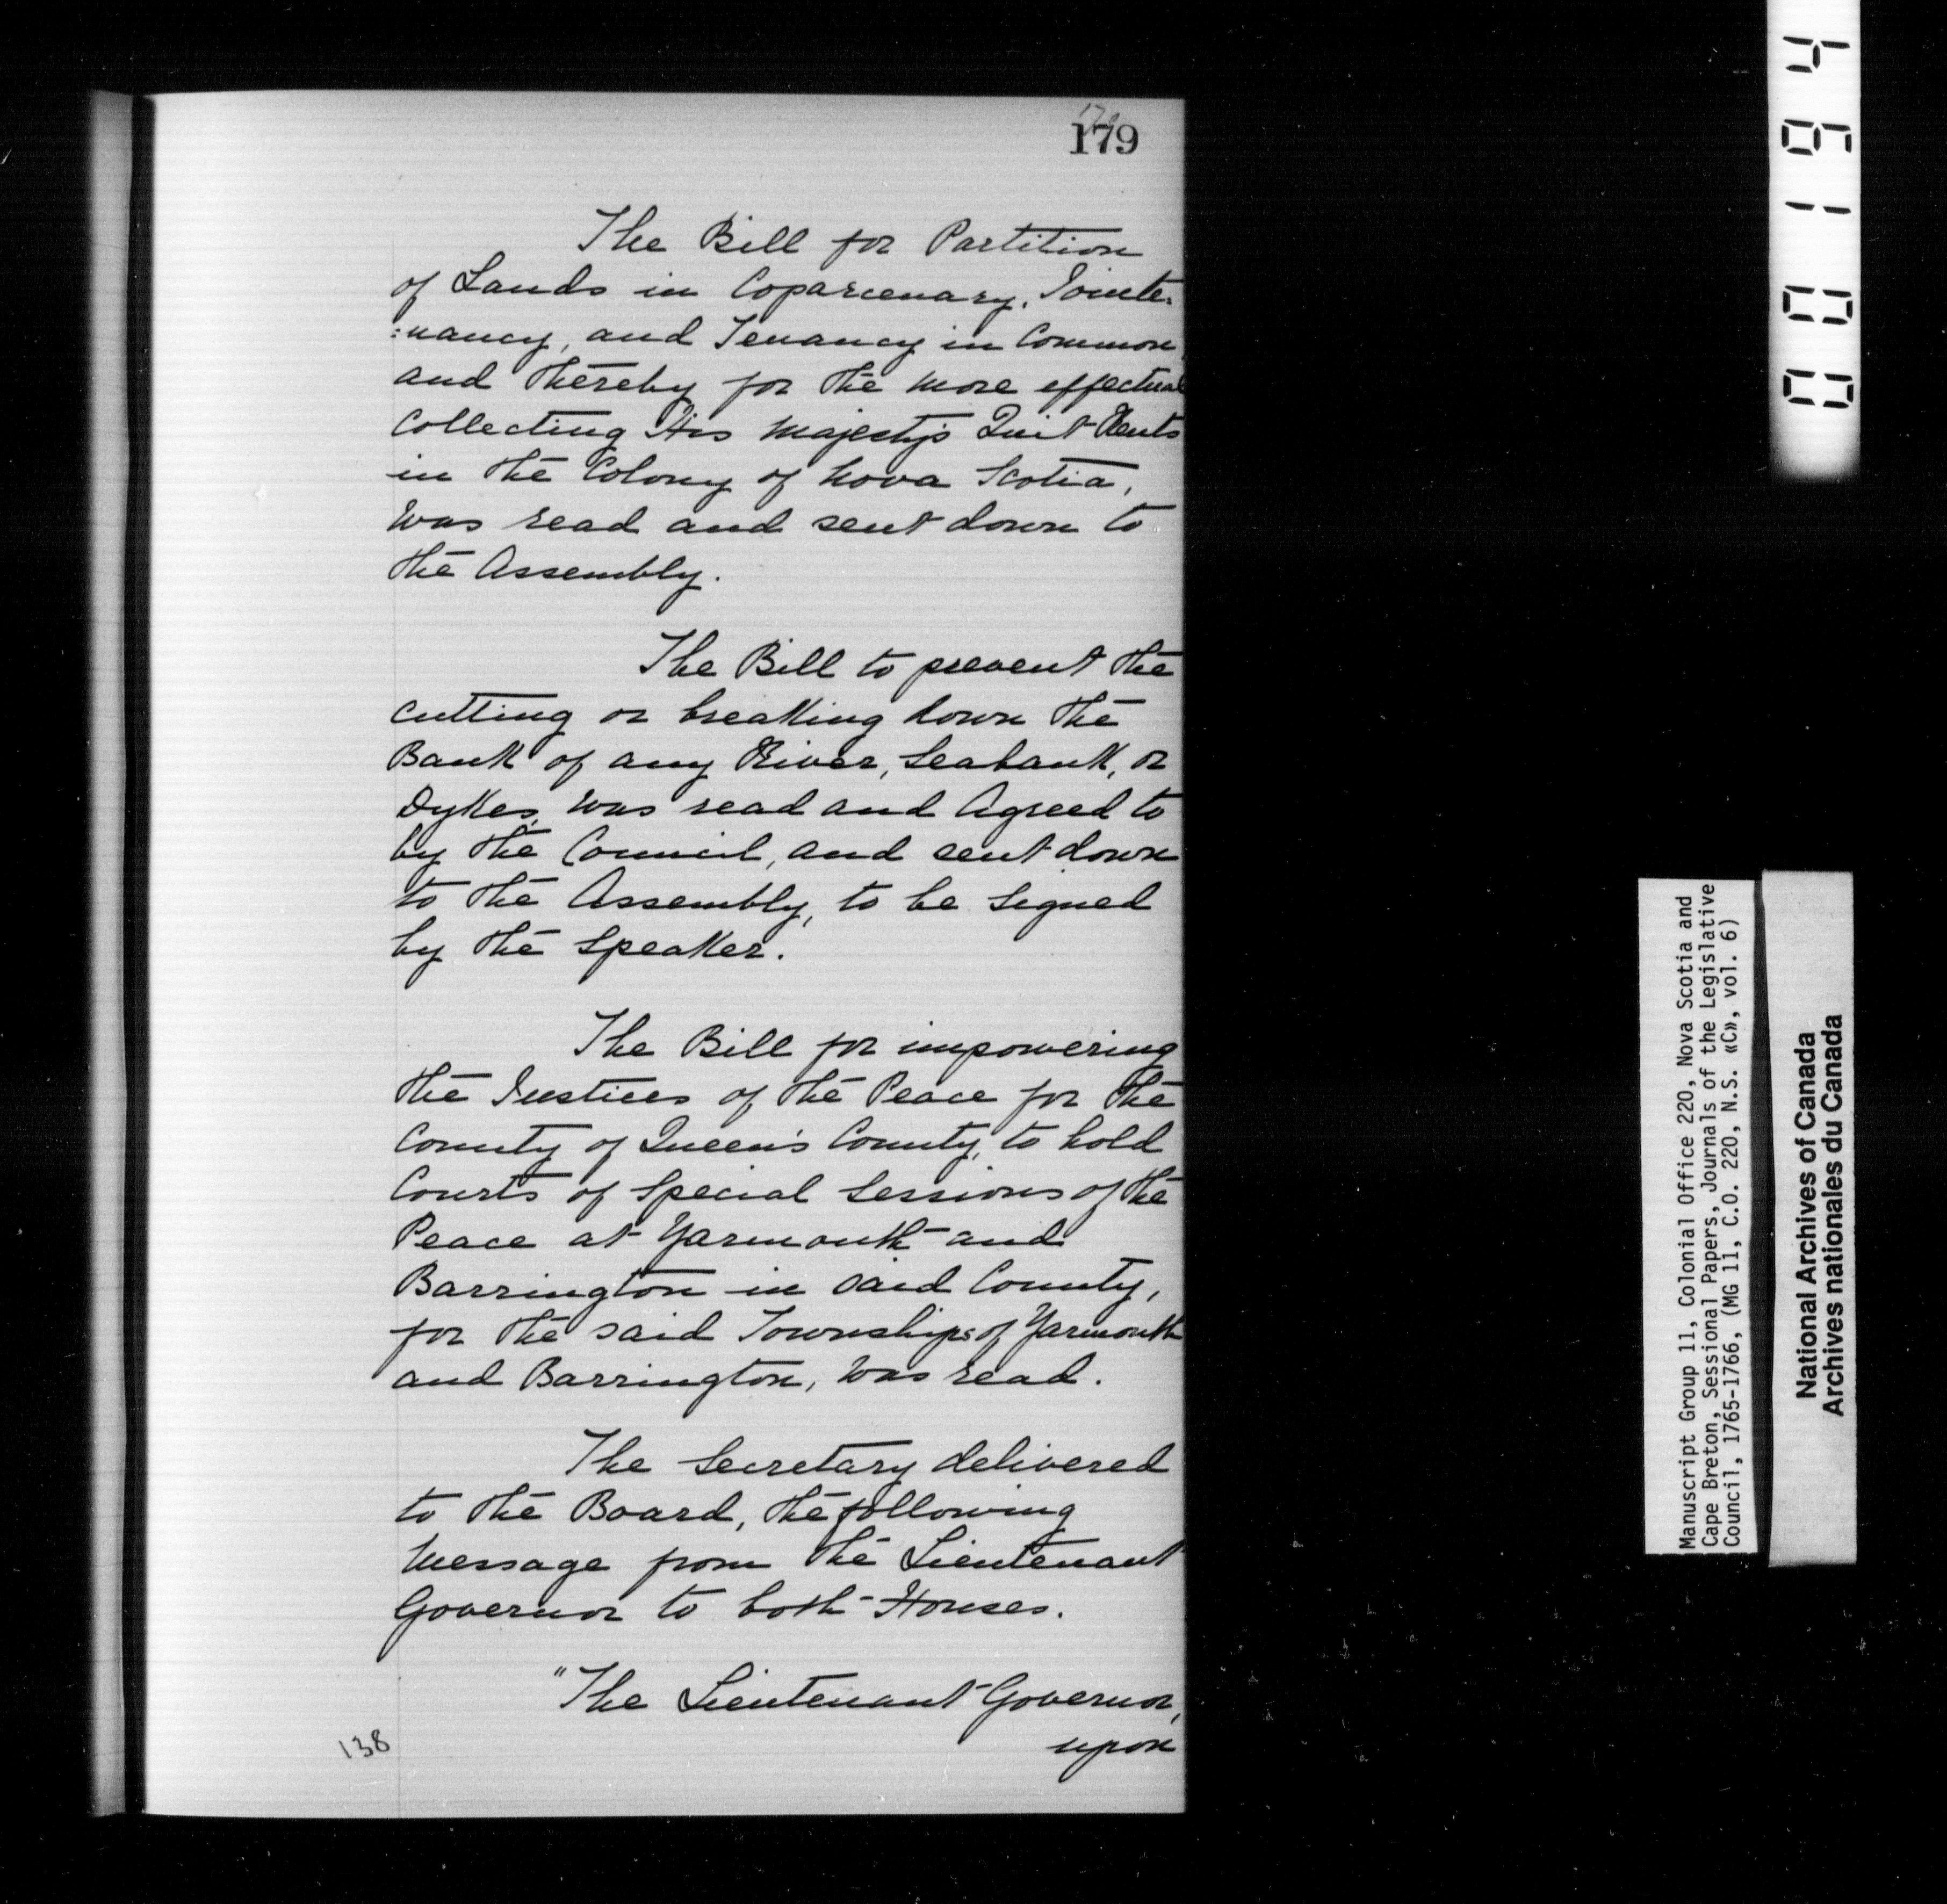 179
The Bill for Partition
of Lands in Coparcenary, Jointe-
:nancy, and Tenancy in Common,
and thereby for the more effectual
Collecting His Majesty's Quit Rents
in the Colony of Nova Scotia,
was read and sent down to
the Assembly.
The Bill to prevent the
cutting or breaking down the
Bank of any River, Seabank, or
Dykes, was read and Agreed to
by the Council, and sent down
to the Assembly, to be Signed
by the Speaker.
The Bill for impowering
the Justices of the Peace for the
County of Queen's County, to hold
Courts of Special Sessions of the
Peace at Yarmouth and
Barrington in said County,
for the said Townships of Yarmouth
and Barrington, was read.
The Secretary delivered
to the Board, the following
Message from the Lieutenant
Governor to both Houses.
"The Lieutenant Governor,
upon
138
00194
Manuscript Group 11, Colonial Office 220, Nova Scotia and
Cape Breton, Sessional Papers, Journals of the Legislative
Council, 1765-1766, (MG 11, C.O. 220, N.S. «C», vol. 6)
National Archives of Canada
Archives nationales du Canada